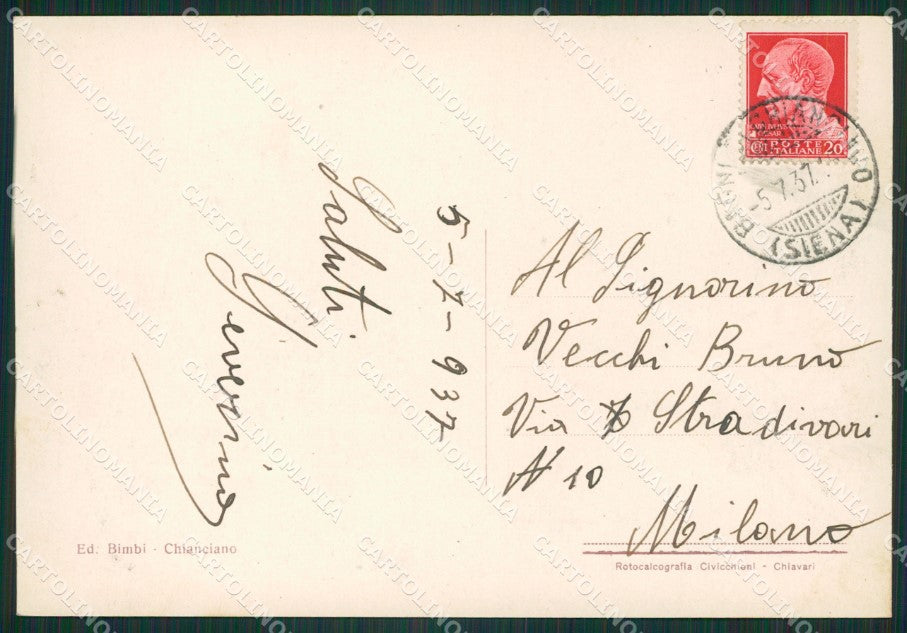 5-7-937
Saluti
Severino
Al Signorino
Vecchi Bruno
Via Stradivari
N 10
Milano
Ed. Bimbi - Chianciano
Rotocalcografia Civicchioni - Chiavari
POSTE
ITALIANE 20
CENT
BAGNI CHIANCIANO
-5.7.37.
(SIENA)
CARTOLINOMANIA